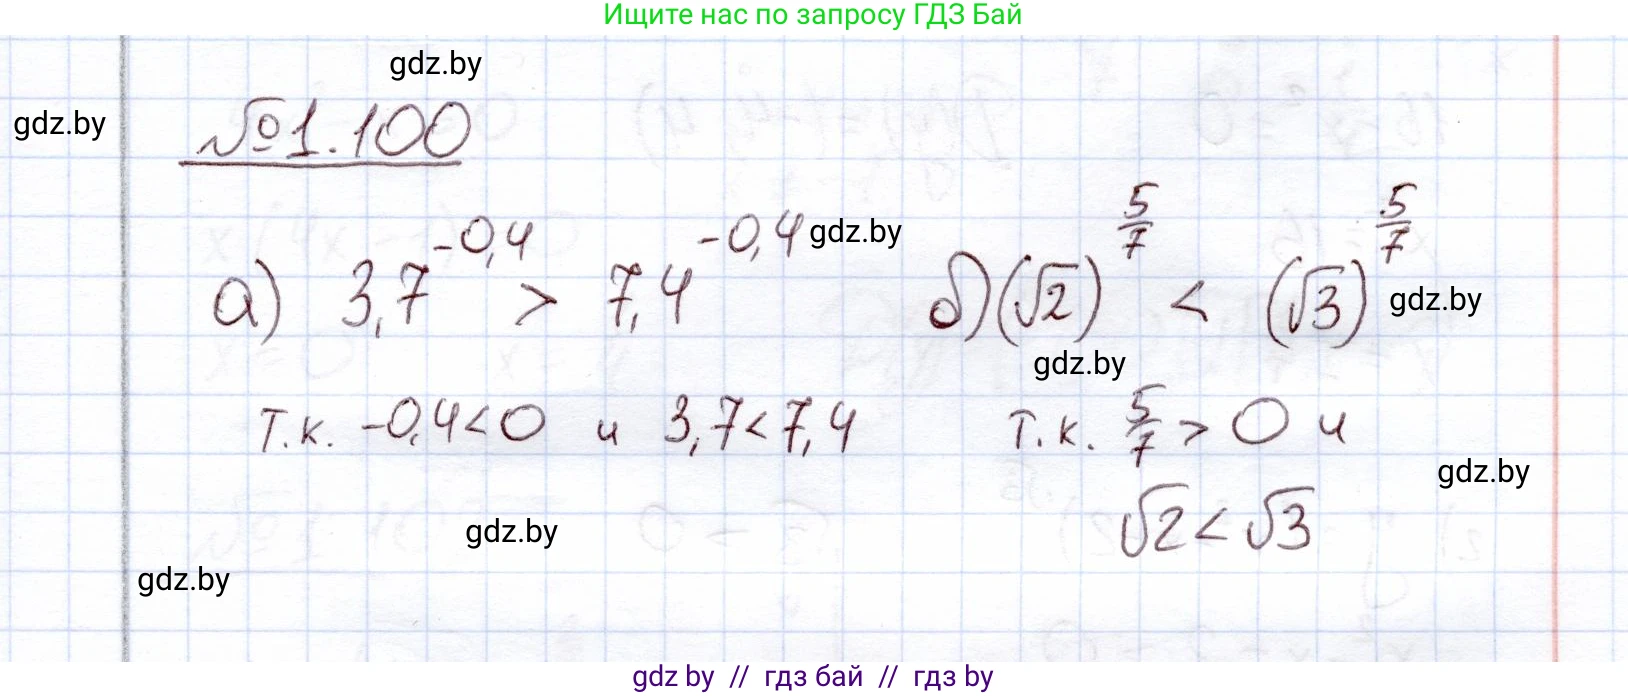 Ищите нас по запросу ГДЗ Бай
gdz.by
gdz.by
№1.100
а) 3,7^-0,4 > 7,4^-0,4 gdz.by б) (√2)^5/7 < (√3)^5/7 gdz.by
gdz.by
т.к. -0,4<0 и 3,7<7,4 т.к. 5/7 > 0 и
gdz.by
√2<√3
gdz.by
gdz.by
gdz by // гдз бай // гдз by